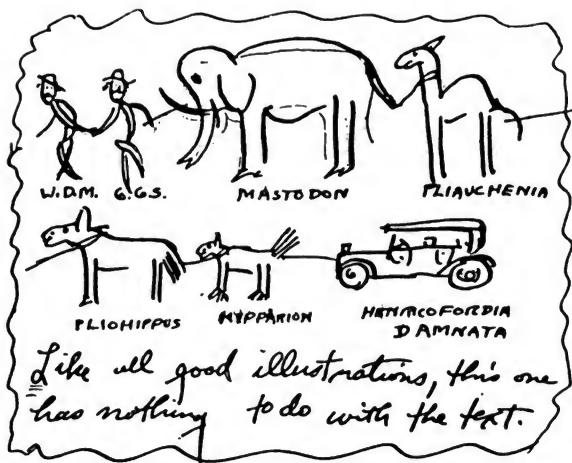 W.D.M. G.G.S. MASTODON PLIAUCHENIA
PLIOHIPPUS HYPPARION HENRICOFORDIA
DAMNATA
Like all good illustrations, this one
has nothing to do with the text.